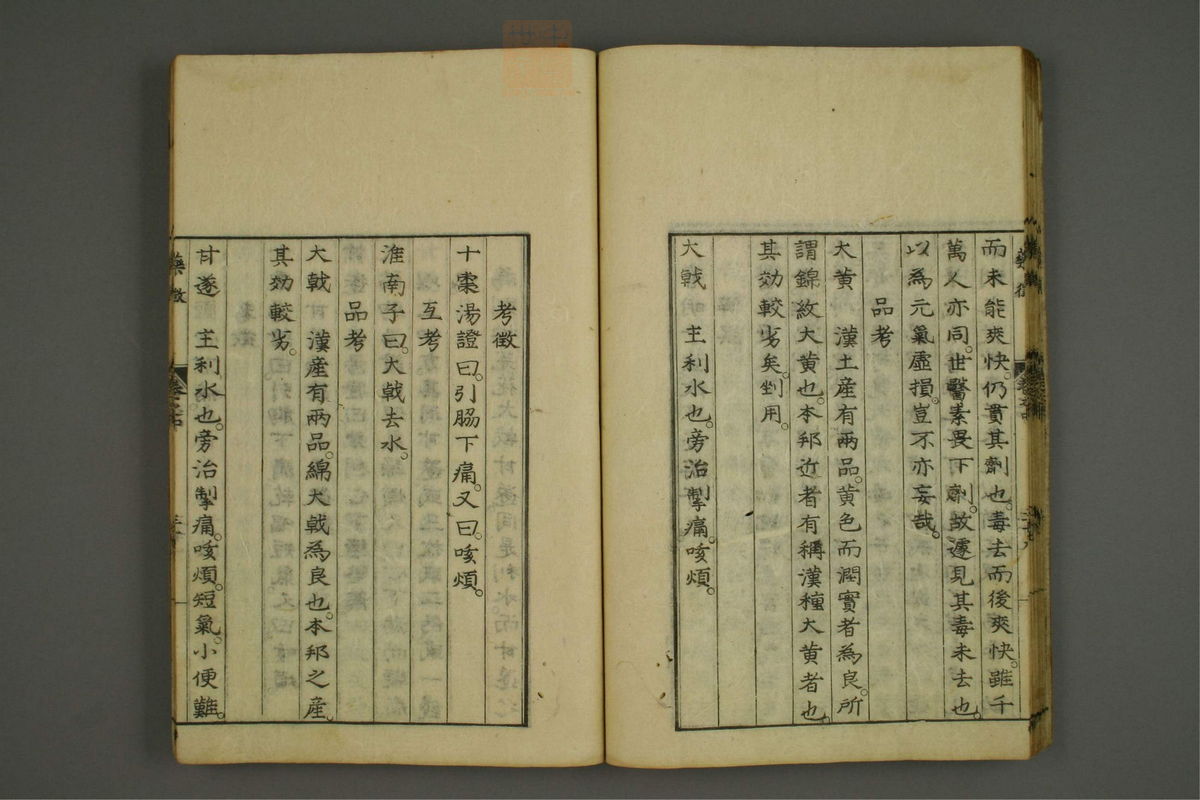 而未能爽快。仍貫其劑也。毒去而後爽快。雖千
萬人亦同。世醫素畏下劑。故遽見其毒未去也。
以為元氣虛損。豈不亦妄哉。
品考
大黄 漢土産有兩品。黄色而潤實者為良。所
謂錦紋大黄也。本邦近者有稱漢種大黄者也。
其効較劣矣。剉用。
大戟 主利水也。旁治掣痛。咳煩。
考徵
十棗湯證曰。引脇下痛。又曰。咳煩。
互考
淮南子曰。大戟去水。
品考
大戟 漢産有兩品。綿大戟為良也。本邦之産。
其効較劣。
甘遂 主利水也。旁治掣痛。咳煩。短氣。小便難。
藥徵